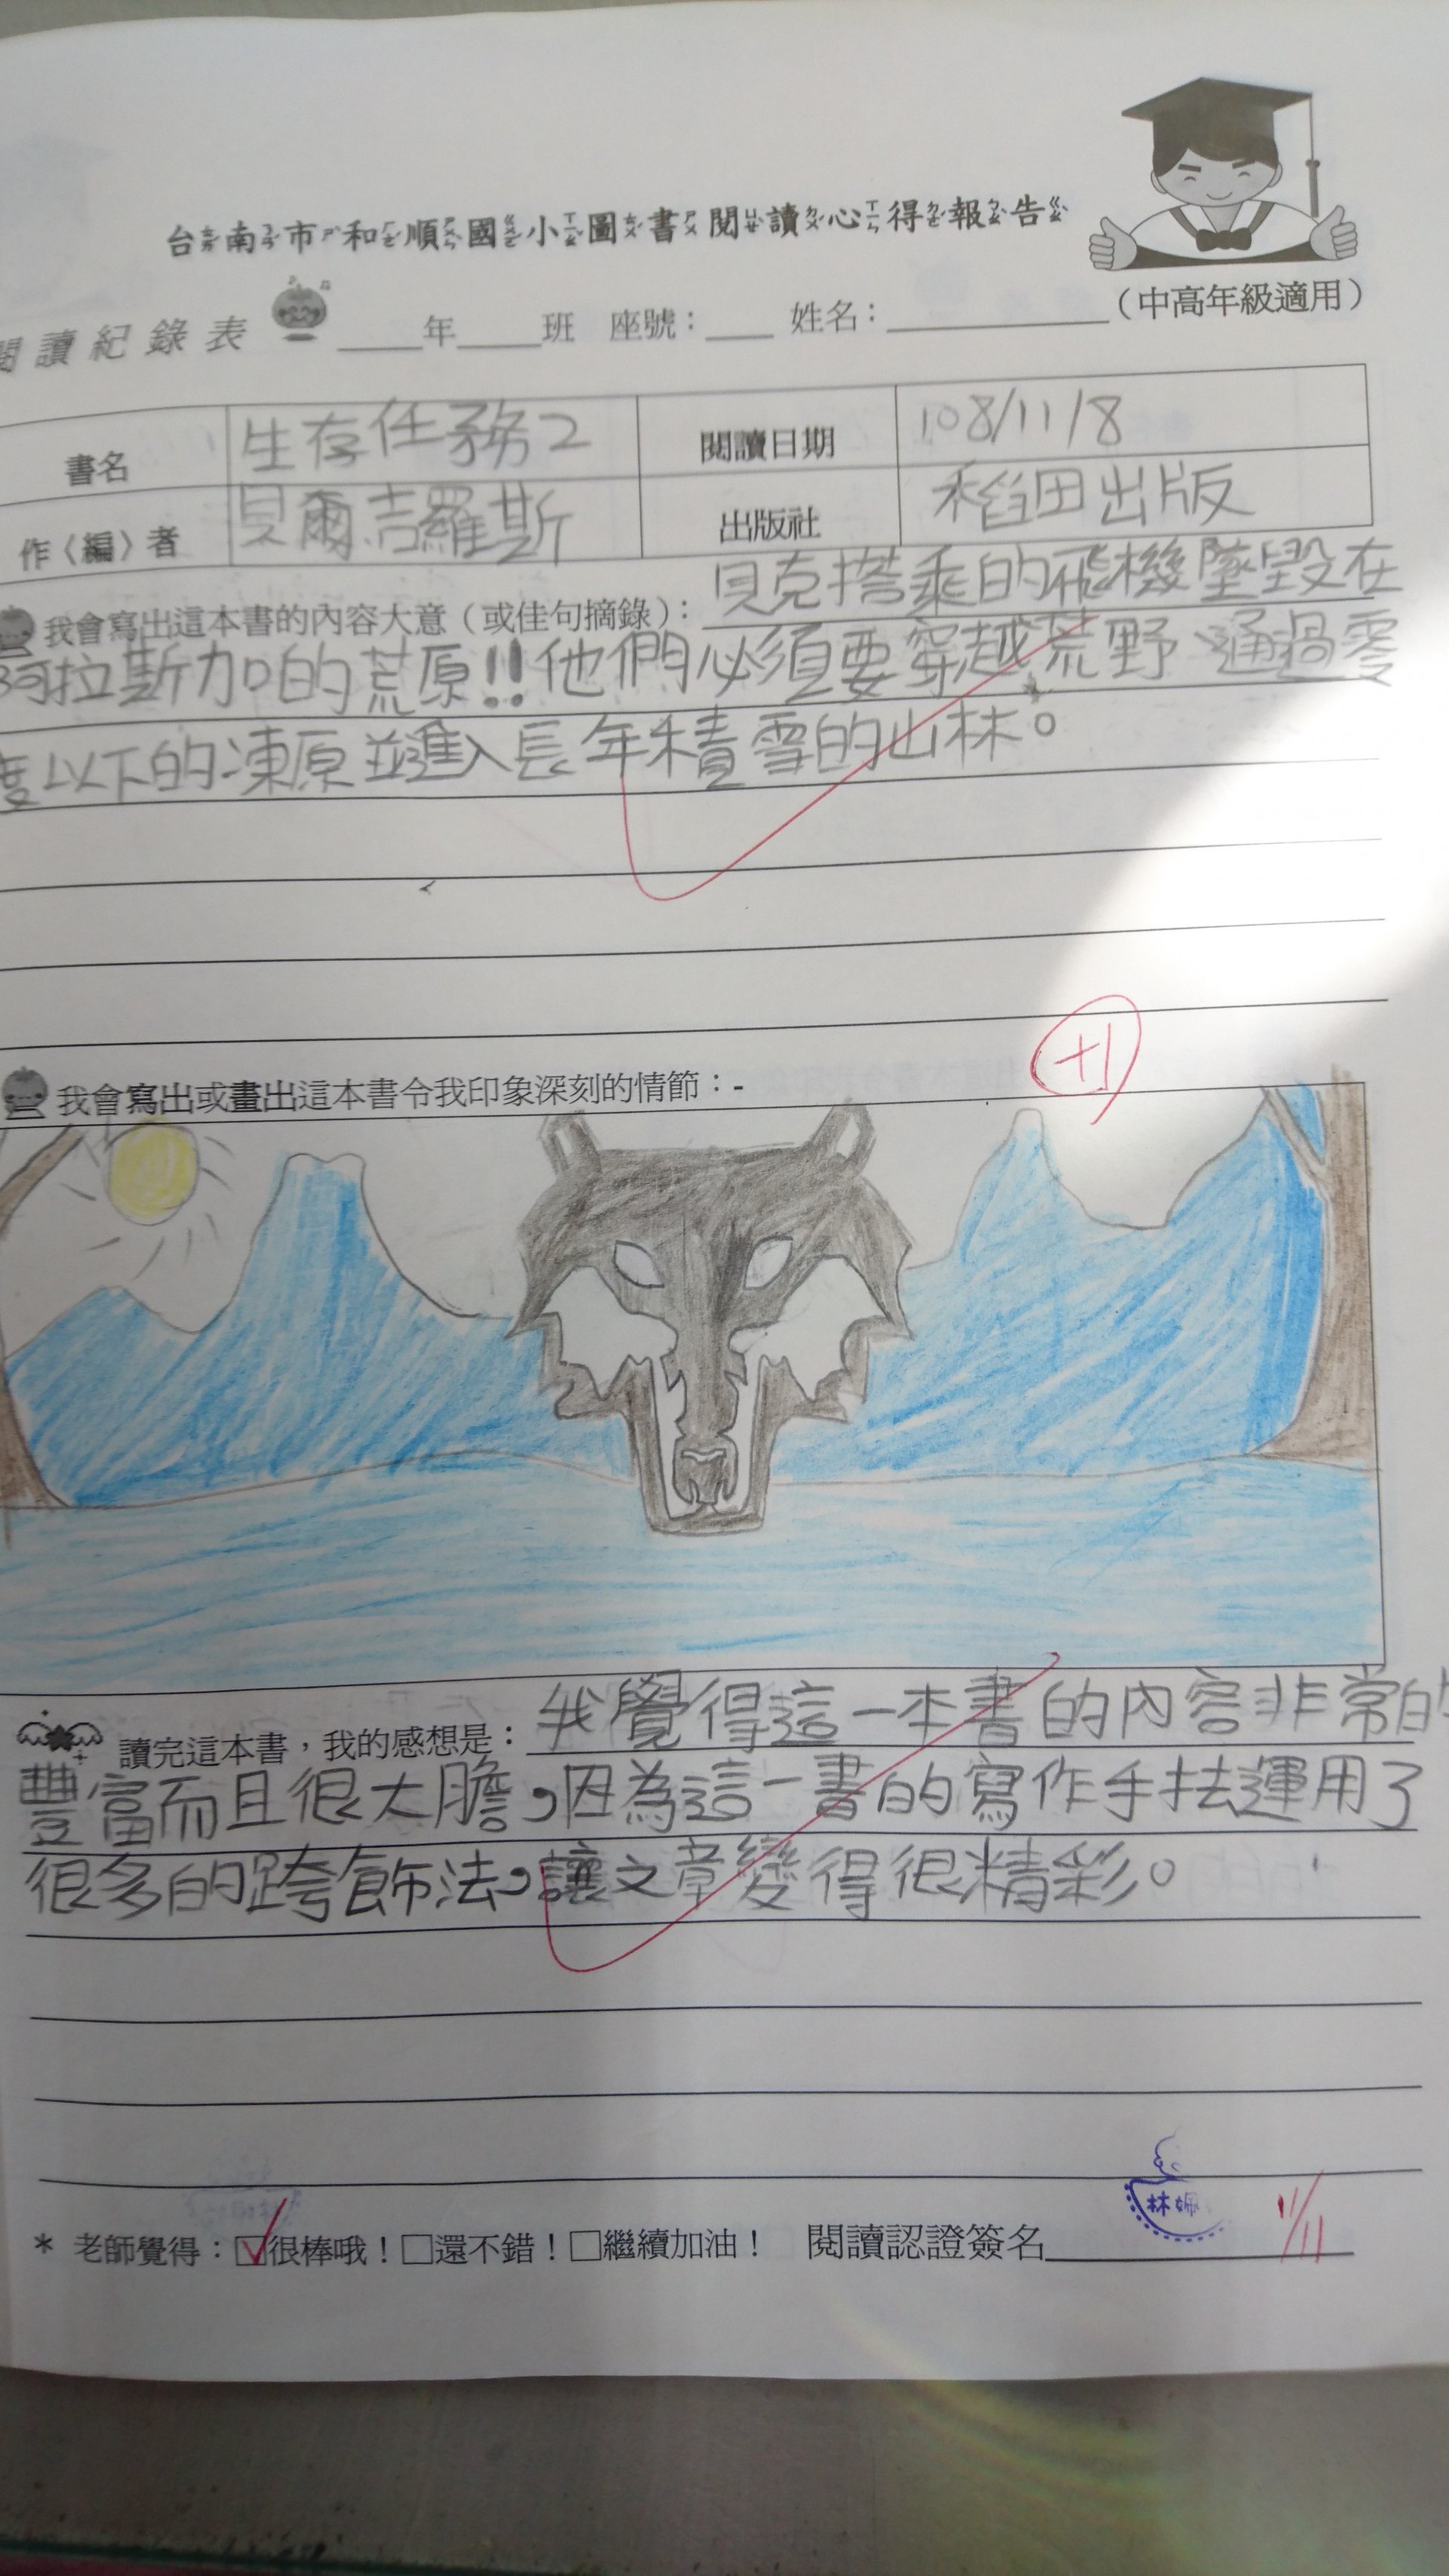 台南市和順國小圖書閱讀心得報告
閱讀紀錄表 ____年____班 座號：____ 姓名：________（中高年級適用）
書名 生存任務2 閱讀日期 108/11/8
作〈編〉者 貝爾吉羅斯 出版社 稻田出版
我會寫出這本書的內容大意（或佳句摘錄）：貝克搭乘的飛機墜毀在
阿拉斯加的荒原!!他們必須要穿越荒野、通過零
度以下的凍原並進入長年積雪的山林。
+1
我會寫出或畫出這本書令我印象深刻的情節：-
讀完這本書，我的感想是：我覺得這一本書的內容非常的
豐富而且很大膽，因為這一書的寫作手法運用了
很多的跨飾法，讓文章變得很精彩。
* 老師覺得：☑很棒哦！□還不錯！□繼續加油！ 閱讀認證簽名 林姵 11/11